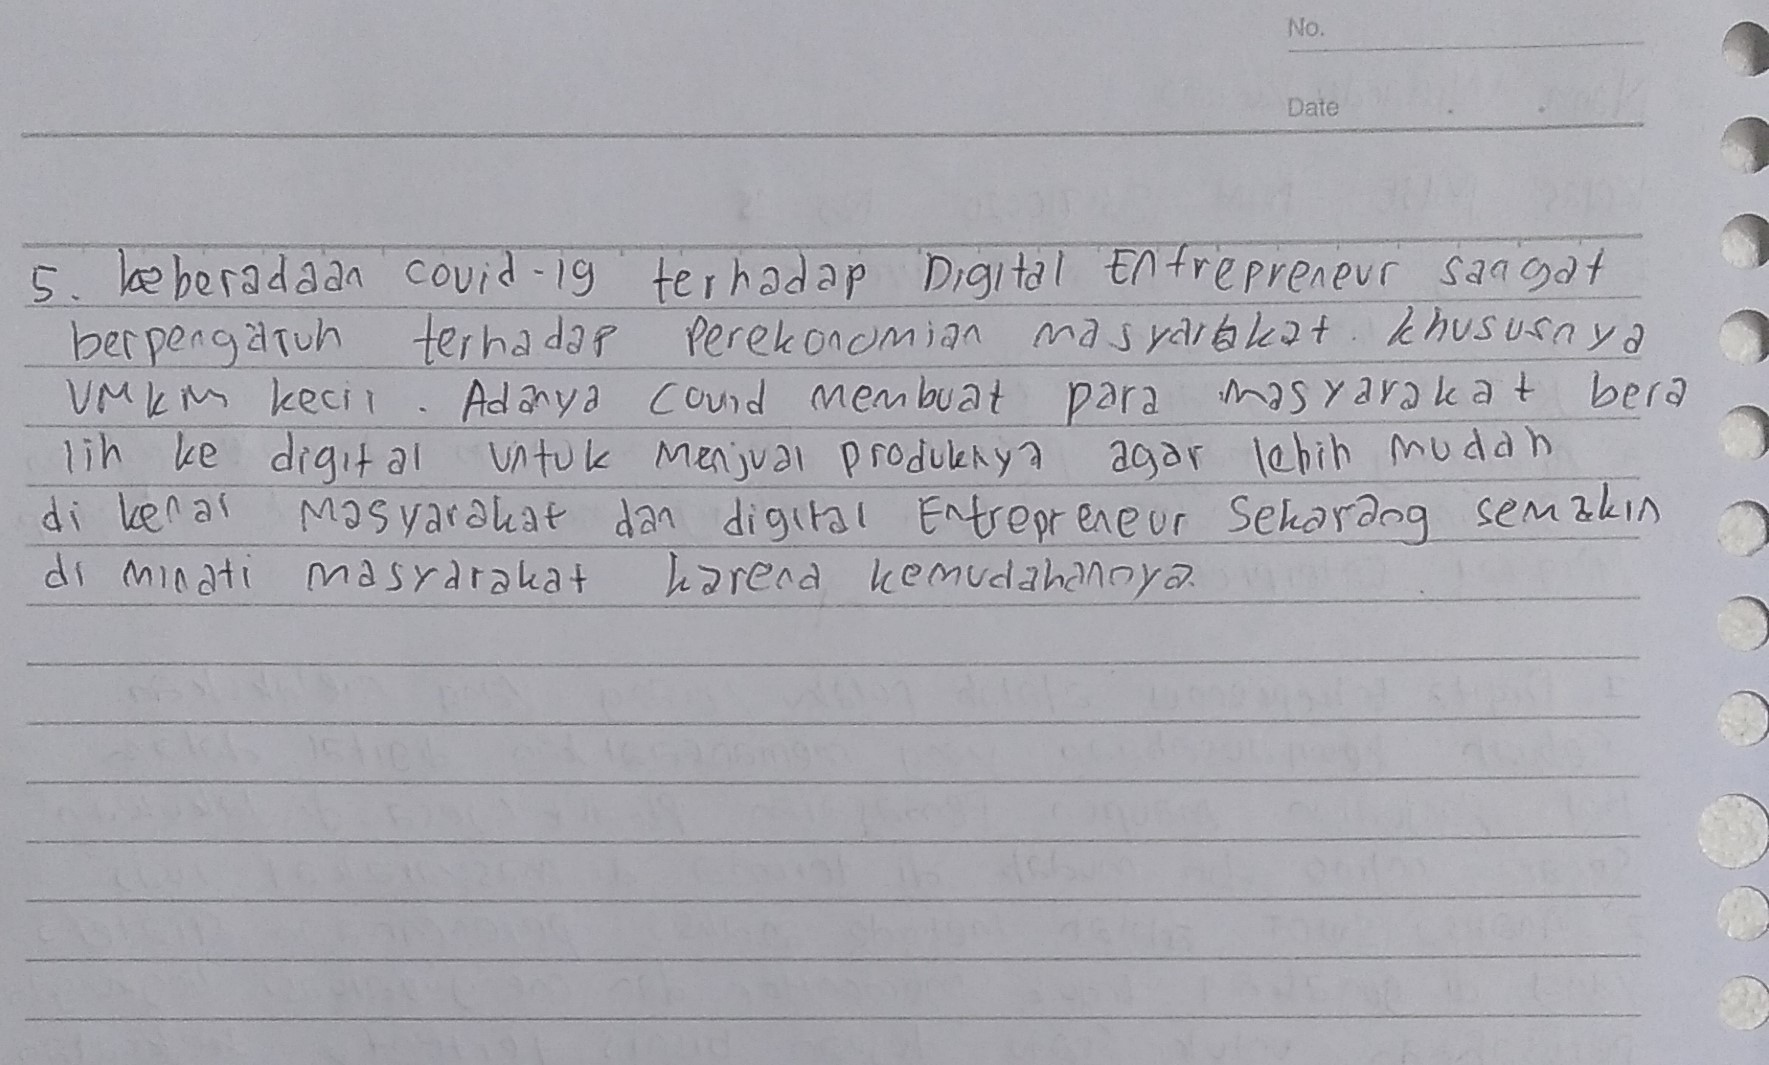 No.
Date
5. keberadaan covid-19 terhadap Digital Entrepreneur sangat
berpengaruh terhadap Perekonomian masyarakat. khususnya
UMKM kecil. Adanya Covid membuat para masyarakat bera
lih ke digital untuk menjual produknya agar lebih mudah
di kenal Masyarakat dan digital Entrepreneur Sekarang semakin
di minati masyarakat karena kemudahannya.